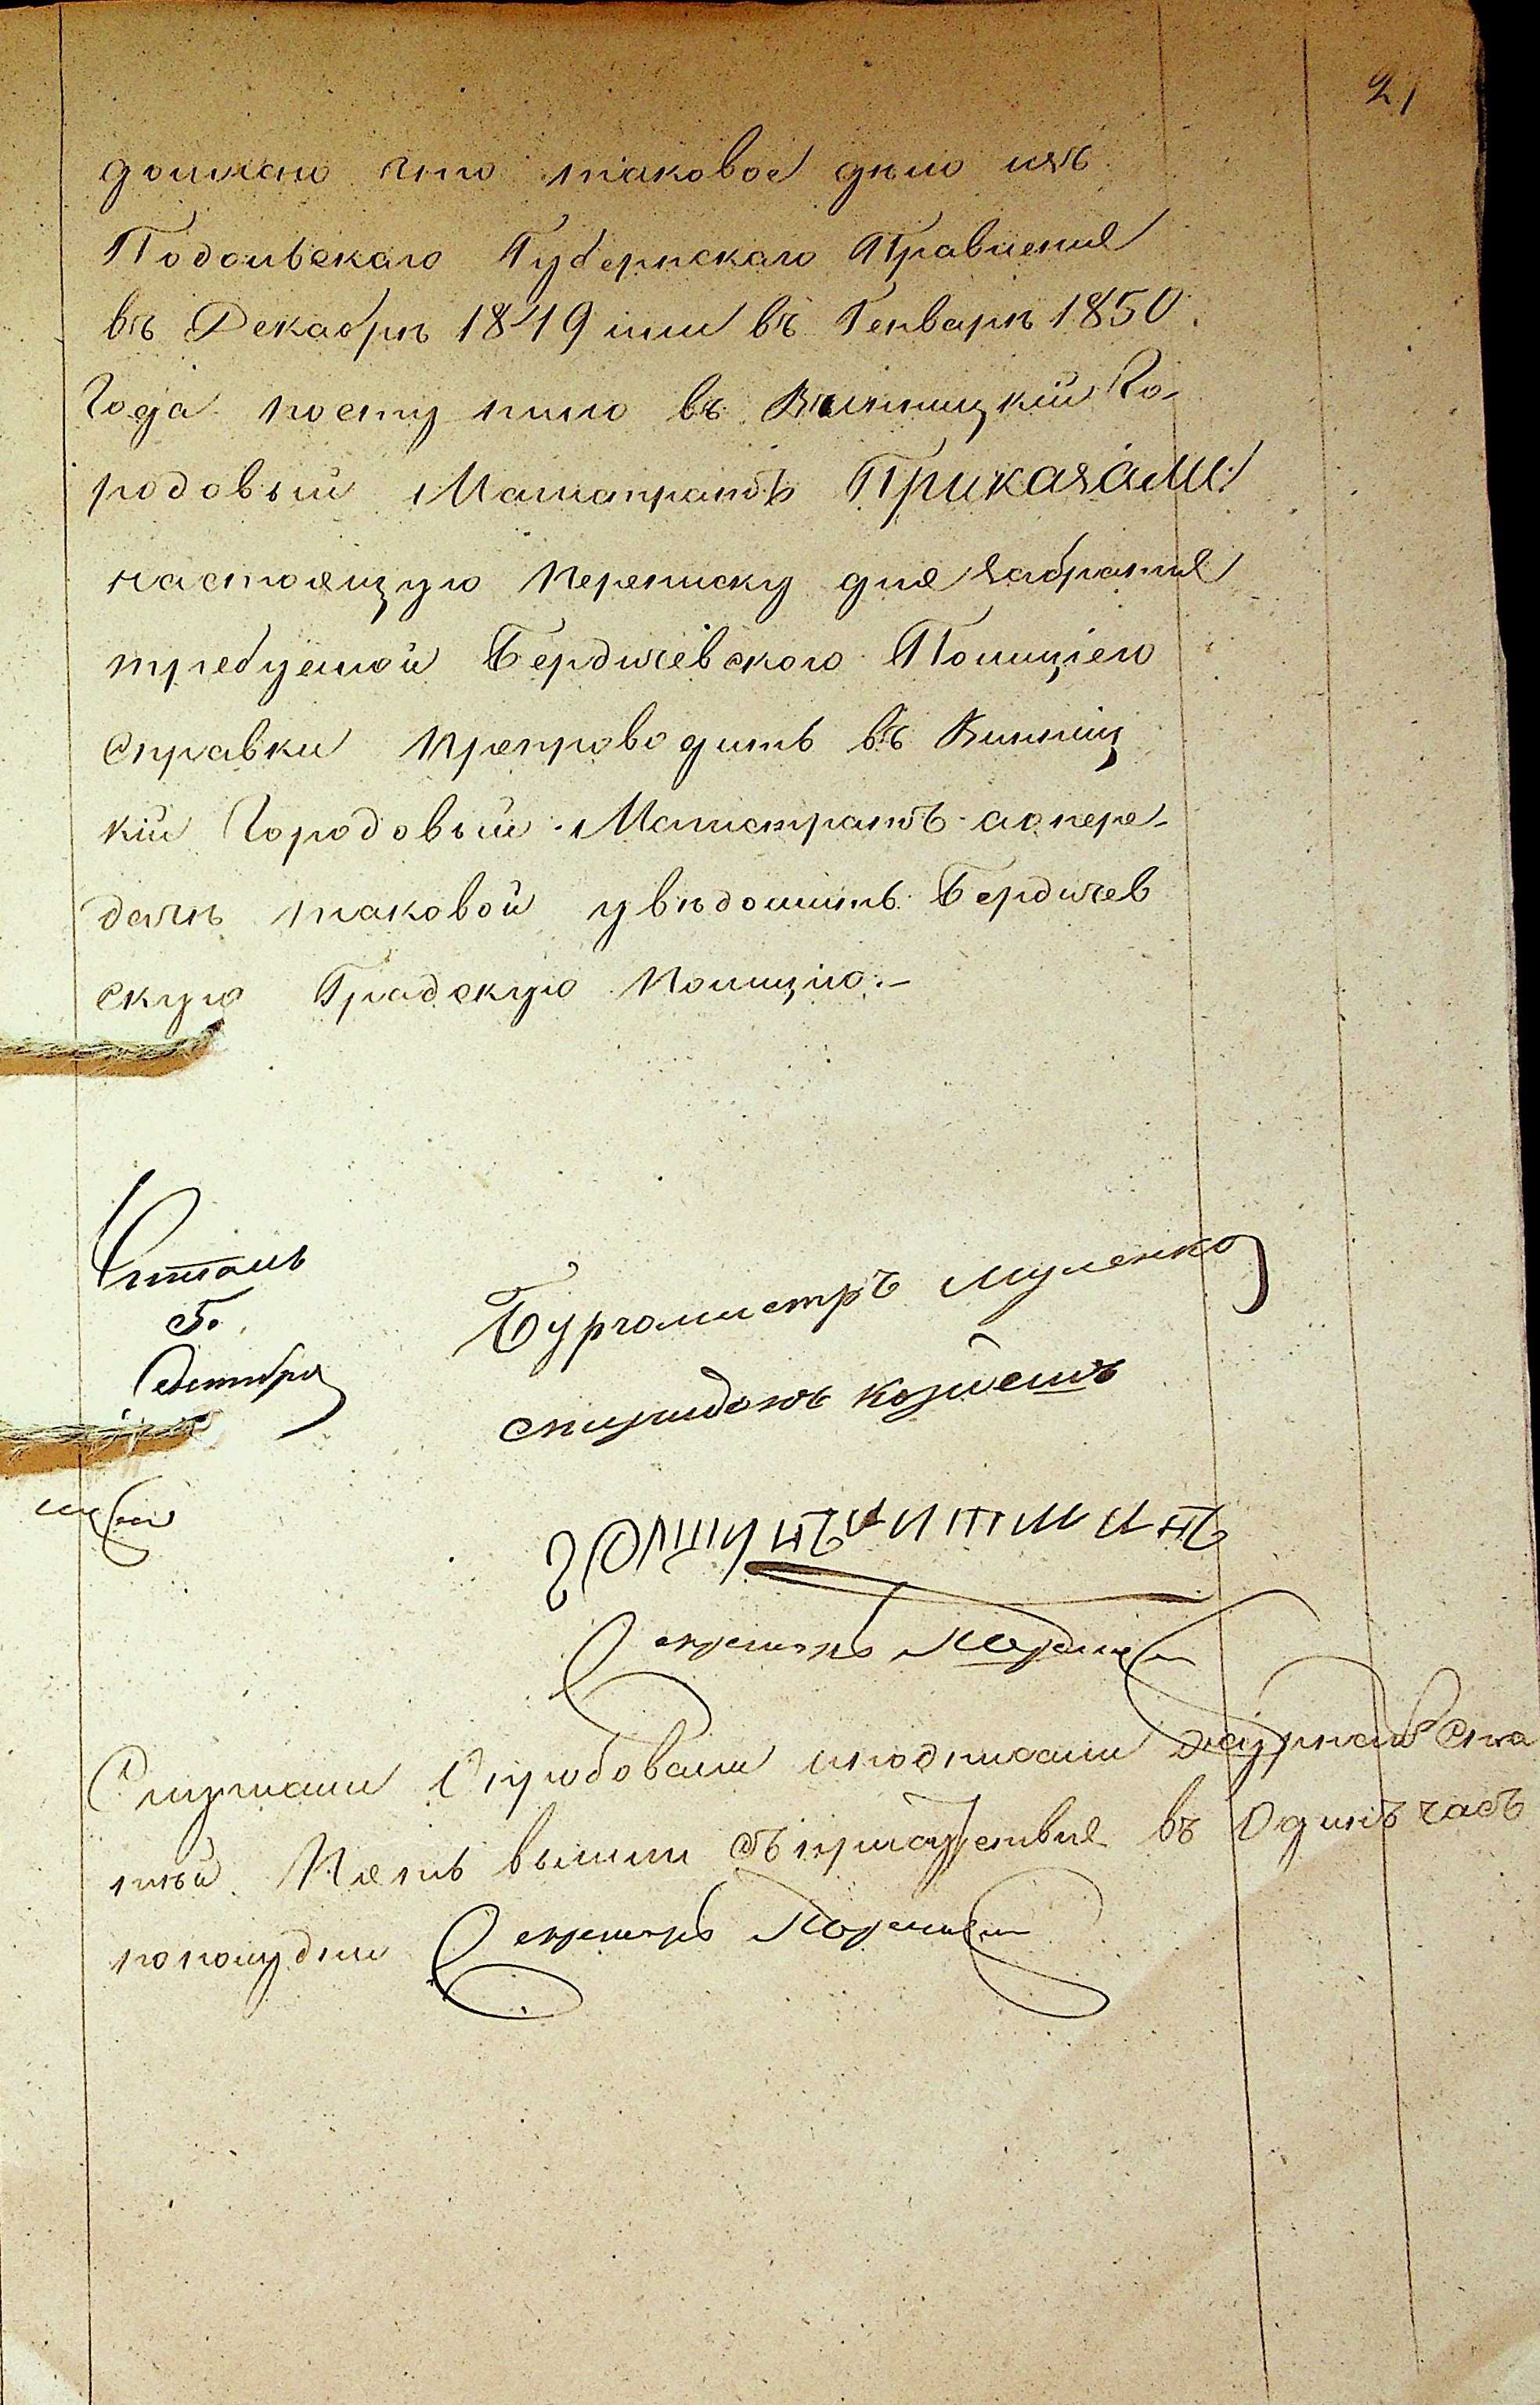 21
должно что таковое дѣло изъ
Подольскаго Губернскаго Правленія
въ Декабрѣ 1849 или въ Генварѣ 1850
Года поступило въ Винницкій Го-
родовый Магистратъ Приказали:
настоящую переписку для забранія
требуемой Бердичевского Полиціею
справки препроводить въ Винниц
кій Городовый Магистратъ а о пере-
дачѣ таковой увѣдомить Бердичев
скую Градскую Полицію.-
Читалъ
5.
Сентября
Бургомистръ
спиридонъ
Секретарь
Слушали и подписали журналъ
въ Одинъ часъ
пополудни Секретарь